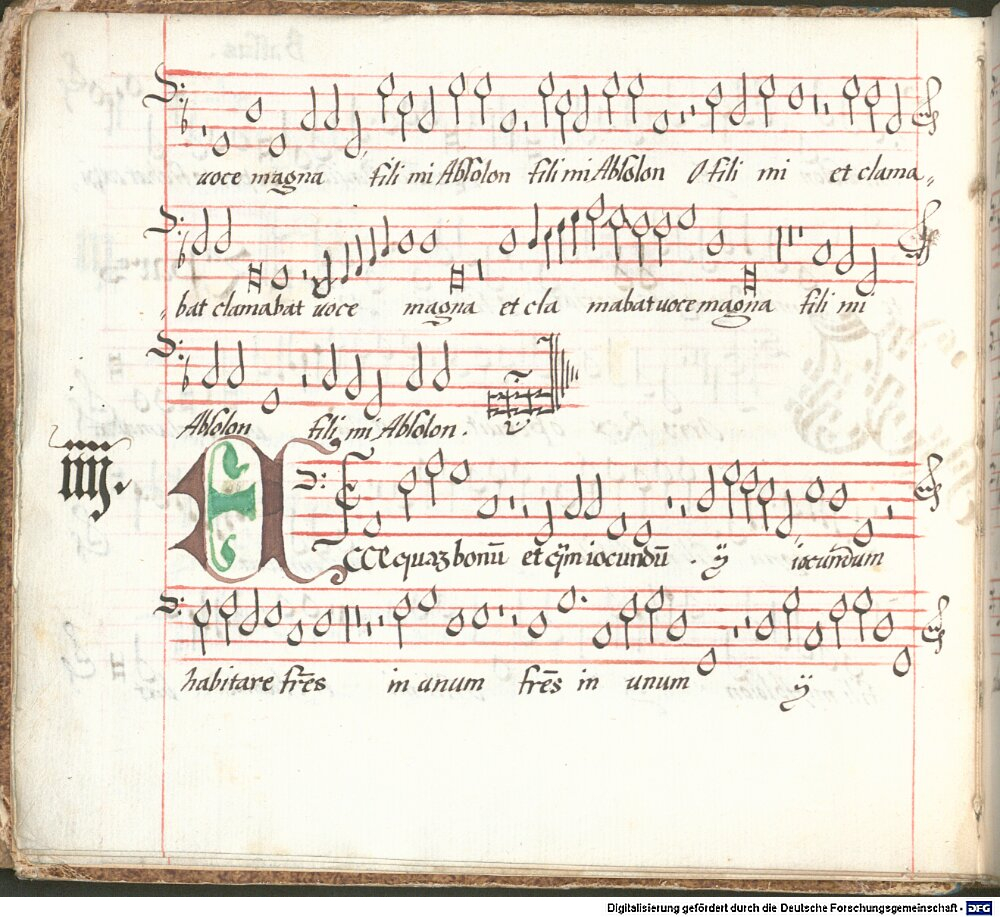 voce magna fili mi Absolon fili mi Absolon O fili mi et clama„
„bat clamabat voce magna et cla mabat voce magna fili mi
Absolon fili mi Absolon.
iiij.
ECCE quaʒ bonū et q̄m iocundū. ij iocundum
habitare frēs in unum frēs in unum ij
Digitalisierung gefördert durch die Deutsche Forschungsgemeinschaft - DFG